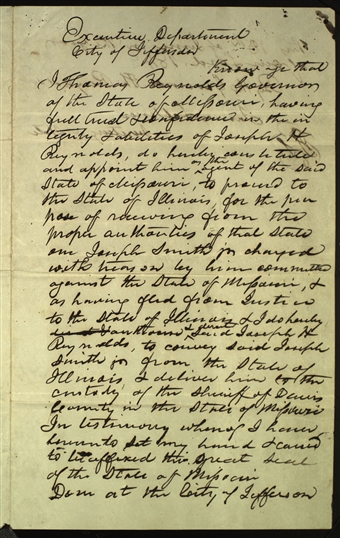 Executive Department
City of Jefferson
Know ye that
I Thomas Reynolds Governor
of the State of Missouri, having
full trust & confidence in the in
tegrity & abilities of Joseph H
Reynolds, do hereby constitute
and appoint him the agent of the said
State of Missouri, to proceed to
the State of Illinois, for the pur
pose of receiving from the
proper authorities of that State
one Joseph Smith jr charged
with treason by him committed
against the State of Missouri, &
as having fled from Justice
to the State of Illinois & I do hereby
authorise & direct said Joseph H
Reynolds, to convey said Joseph
Smith jr from the State of
Illinois, & deliver him to the
custody of the Sheriff of Daviess
County in the State of Missouri
In testimony whereof I have
hereunto set my hand & caused
to be affixed the great seal
of the State of Missouri
Done at the City of Jefferson